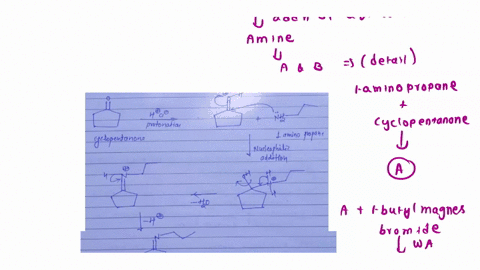 Amine
A & B ⇒ (detail)
1-aminopropane
+
cyclopentanone
A
A + 1-butyl magnes
bromide
WA
H₃O⊕
protonation
+
cyclopentanone
Nucleophilic
addition
-H₂O
-H⊕